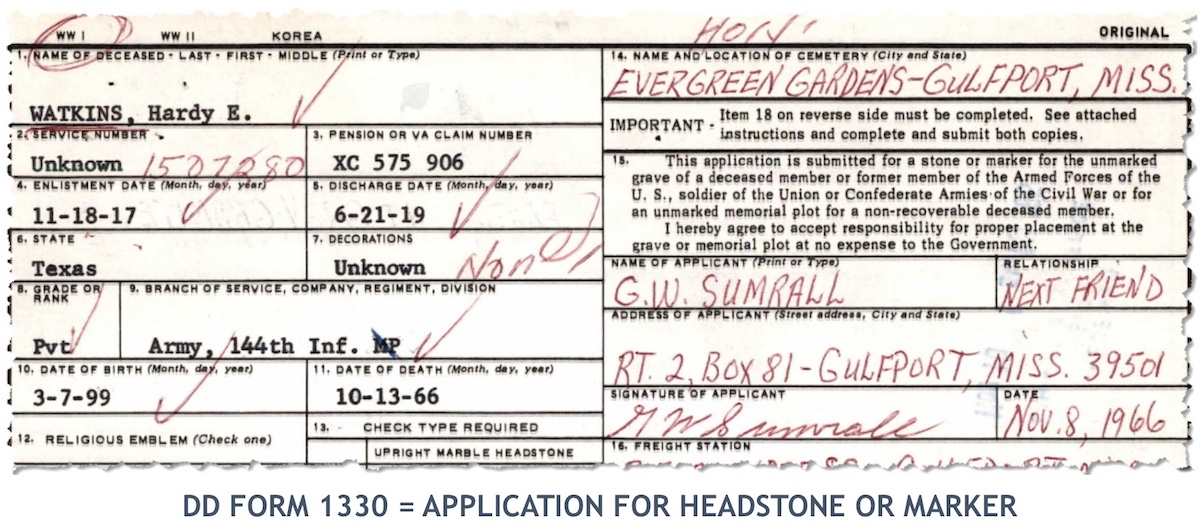 WW I WW II KOREA
ORIGINAL
1. NAME OF DECEASED - LAST - FIRST - MIDDLE (Print or Type)
WATKINS, Hardy E.
2. SERVICE NUMBER
Unknown 1507280
3. PENSION OR VA CLAIM NUMBER
XC 575 906
4. ENLISTMENT DATE (Month, day, year)
11-18-17
5. DISCHARGE DATE (Month, day, year)
6-21-19
6. STATE
Texas
7. DECORATIONS
Unknown None
8. GRADE OR RANK
Pvt
9. BRANCH OF SERVICE, COMPANY, REGIMENT, DIVISION
Army, 144th Inf. MP
10. DATE OF BIRTH (Month, day, year)
3-7-99
11. DATE OF DEATH (Month, day, year)
10-13-66
12. RELIGIOUS EMBLEM (Check one)
13. CHECK TYPE REQUIRED
UPRIGHT MARBLE HEADSTONE
14. NAME AND LOCATION OF CEMETERY (City and State)
EVERGREEN GARDENS-GULFPORT, MISS.
IMPORTANT - Item 18 on reverse side must be completed. See attached
instructions and complete and submit both copies.
15. This application is submitted for a stone or marker for the unmarked
grave of a deceased member or former member of the Armed Forces of the
U. S., soldier of the Union or Confederate Armies of the Civil War or for
an unmarked memorial plot for a non-recoverable deceased member.
I hereby agree to accept responsibility for proper placement at the
grave or memorial plot at no expense to the Government.
NAME OF APPLICANT (Print or Type)
G.W. SUMRALL
RELATIONSHIP
NEXT FRIEND
ADDRESS OF APPLICANT (Street address, City and State)
RT. 2, BOX 81-GULFPORT, MISS. 39501
SIGNATURE OF APPLICANT
GW Sumrall
DATE
NOV. 8, 1966
16. FREIGHT STATION
DD FORM 1330 = APPLICATION FOR HEADSTONE OR MARKER